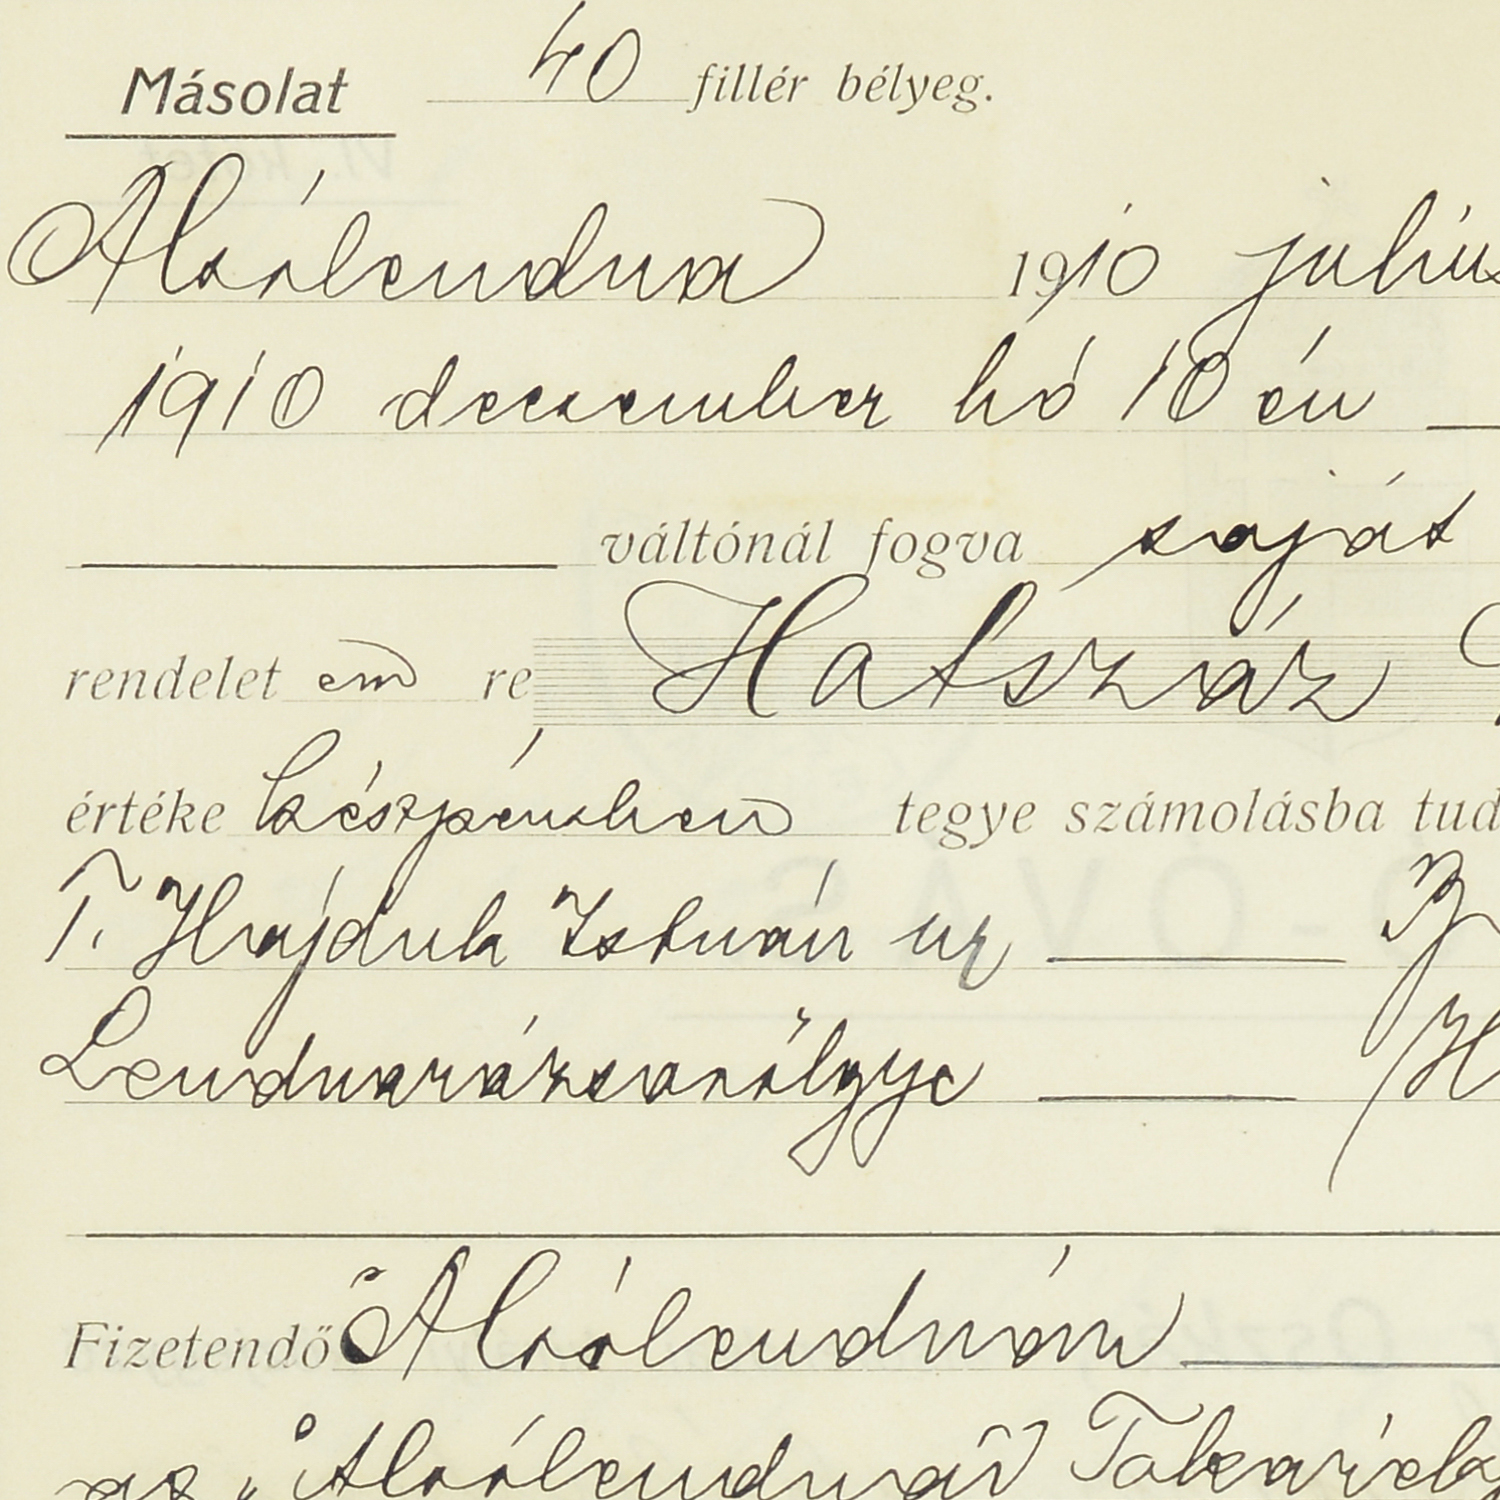 Másolat 40 fillér bélyeg.
Alsólendva 1910 július
1910 deczember hó 10 én
váltónál fogva saját
rendelet em re Hatszáz
értéke készpénzben tegye számolásba tud
T. Hajduk István ur
Lendvavásárhelyi
Fizetendő Alsólendván
az „Alsólendvai Takarék